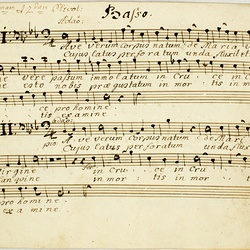 Basso.
Adaō:
Ave verum corpus natum de Maria
Cujus latus perforatum unda fluxit
vere passum immolatum in cru ce in
esto nobis praegustatum in mor tis in
ce pro homine.
tis examine.
adaō:
Ave verum corpus natum de Maria
Cujus latus perforatum unda flux
Virgine in cru ce in cru
in mor tis in mor
pro homine.
examine